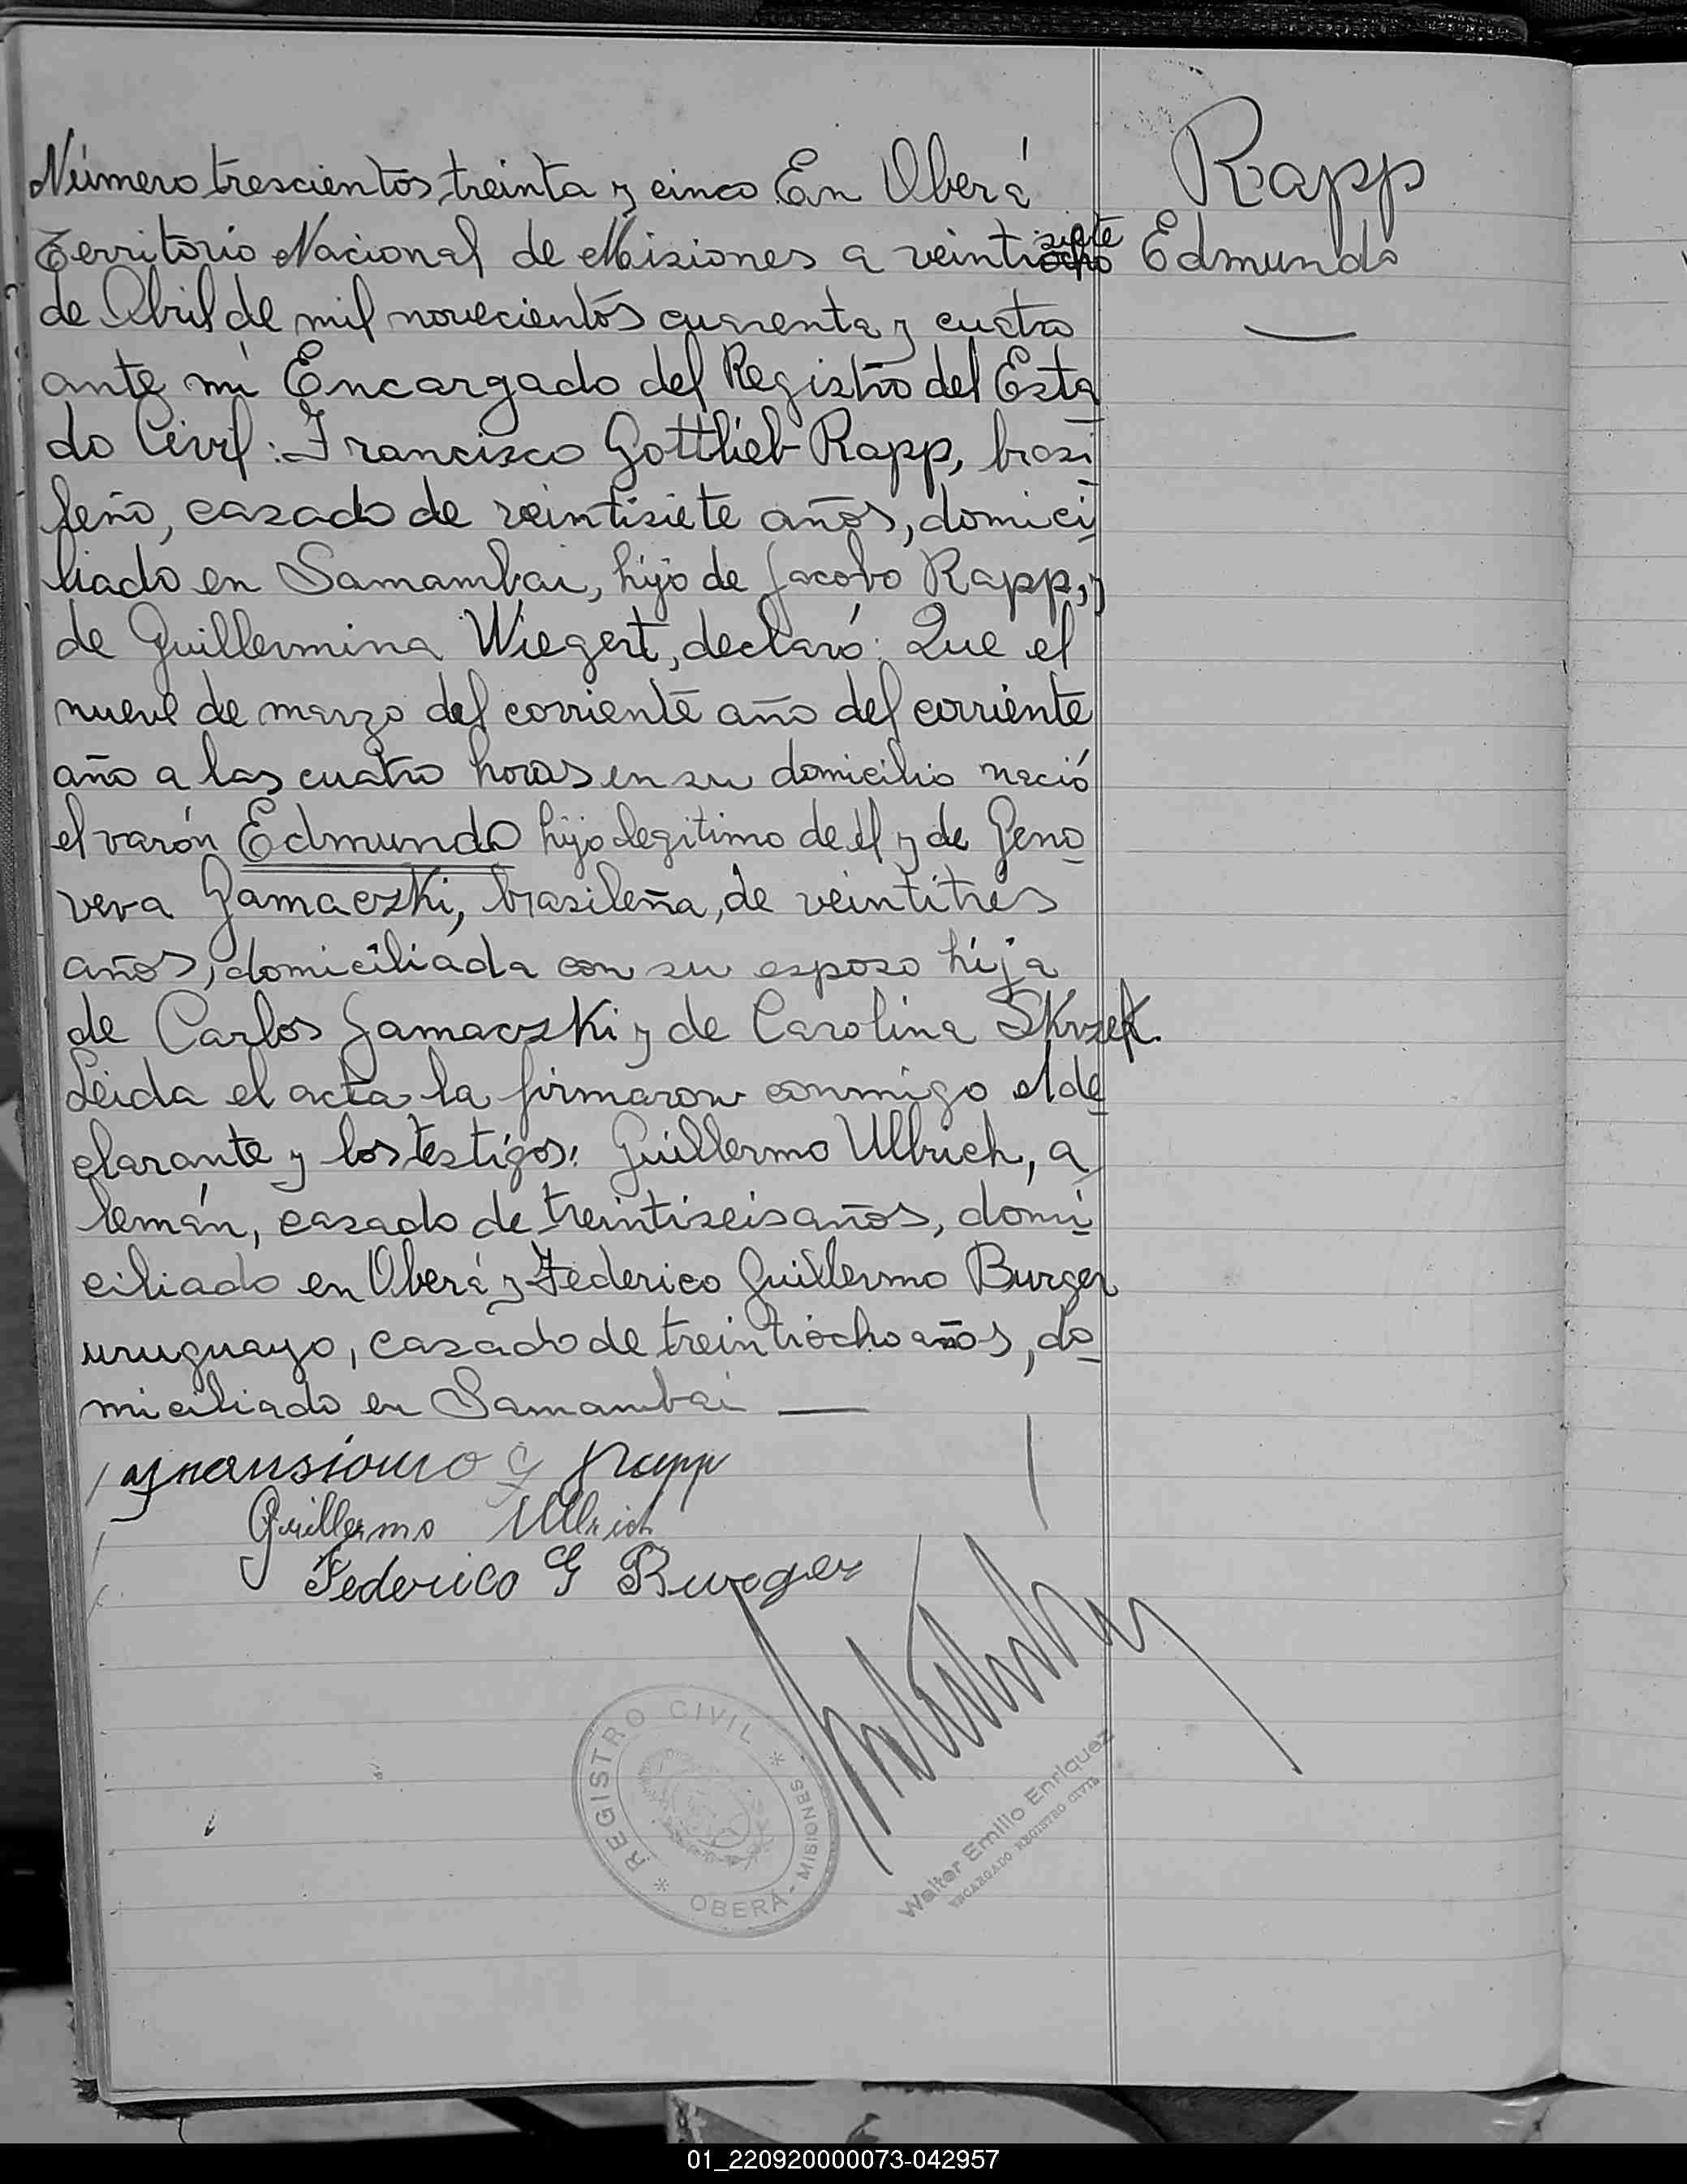 Número trescientos treinta y cinco En Oberá
Territorio Nacional de Misiones a veintisiete
de Abril de mil novecientos cuarenta y cuatro
ante mí Encargado del Registro del Esta
do Civil: Francisco Gottlieb Rapp, brasi
leño, casado de veintisiete años, domici
liado en Samambai, hijo de Jacobo Rapp, y
de Guillermina Wiegert, declaró: Que el
nueve de marzo del corriente año del corriente
año a las cuatro horas en su domicilio nació
el varón Edmundo hijo legitimo de él y de Geno
veva Gamaczki, brasileña, de veintitres
años, domiciliada con su esposo hija
de Carlos Gamaczki y de Carolina Skrzek.
Leida el acta la firmaron conmigo el de
clarante y los testigos: Guillermo Ullrich, a
lemán, casado de treintiseis años, domi
ciliado en Oberá y Federico Guillermo Burger
uruguayo, casado de treintiocho años, do
miciliado en Samambai —
G Rapp
Guillermo Ullrich
Federico G Burger
Rapp
Edmundo
REGISTRO CIVIL
OBERÁ - MISIONES
Walter Emilio Enriquez
ENCARGADO REGISTRO CIVIL
01_220920000073-042957